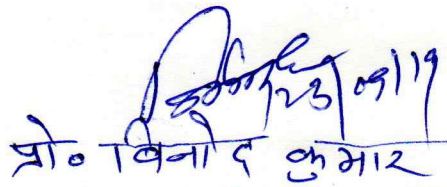 23/09/19
प्रो० विनोद कुमार